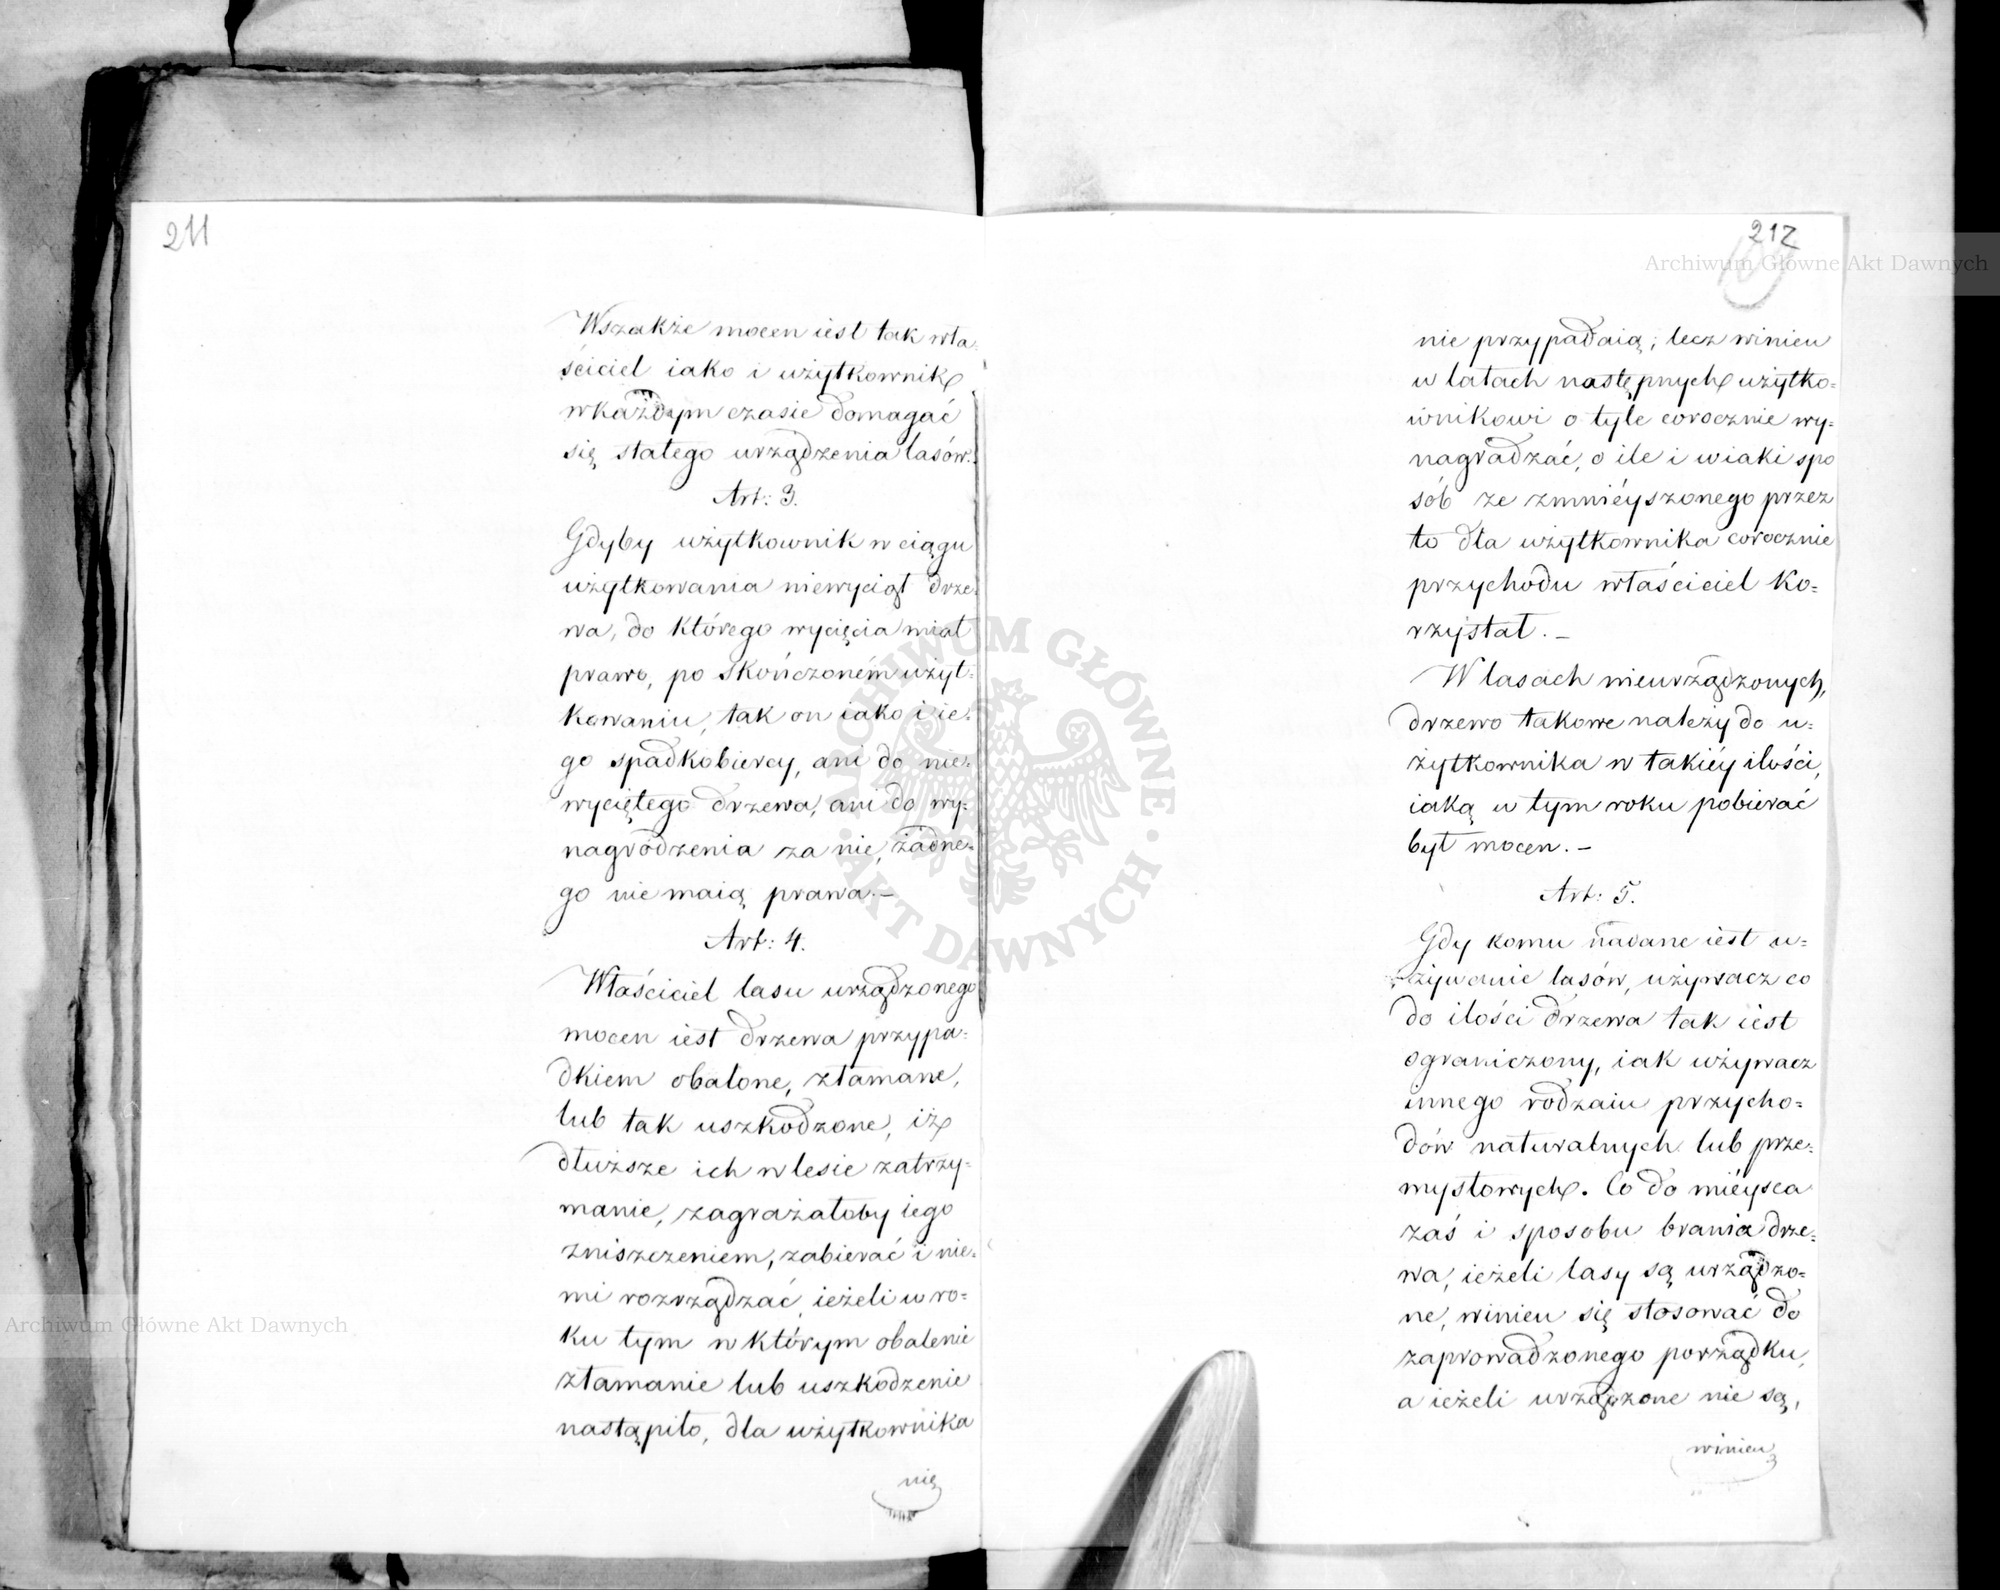 211
Wszakże mocen iest tak wła-
ściciel iako i użytkownik
w każdym czasie domagać
się stałego urządzenia lasów.
Art: 3.
Gdyby użytkownik w ciągu
użytkowania niewyciął drze-
wa, do którego wycięcia miał
prawo, po skończoném użyt-
kowaniu, tak on iako i ie-
go spadkobiercy, ani do nie-
wyciętego drzewa, ani do wy-
nagrodzenia za nie, żadne-
go nie maią prawa.—
Art: 4.
Właściciel lasu urządzonego
mocen iest drzewa przypa-
dkiem obalone, złamane,
lub tak uszkodzone, iż
dłuższe ich w lesie zatrzy-
manie, zagrażałoby iego
zniszczeniem, zabierać i nie-
mi rozrządzać, ieżeli w ro-
ku tym w którym obalenie
złamanie lub uszkodzenie
nastąpiło, dla użytkownika
nie
212
nie przypadaią; lecz winien
w latach następnych użytko-
wnikowi o tyle corocznie wy-
nagradzać, o ile i w iaki spo
sób ze zmnieyszonego przez
to dla użytkownika corocznie
przychodu właściciel ko-
rzystał.—
W lasach nieurządzonych,
drzewo takowe należy do u-
żytkownika w takiéy ilości,
iaką w tym roku pobierać
był mocen.—
Art: 5.
Gdy komu nadane iest u-
żywanie lasów, używacz co
do ilości drzewa tak iest
ograniczony, iak używacz
innego rodzaiu przycho-
dów naturalnych lub prze-
mysłowych. Co do mieysca
zaś i sposobu brania drze-
wa, ieżeli lasy są urządzo-
ne, winien się stosować do
zaprowadzonego porządku,
a ieżeli urządzone nie są,
winien
Archiwum Główne Akt Dawnych
Archiwum Główne Akt Dawnych
ARCHIWUM GŁÓWNE
AKT DAWNYCH